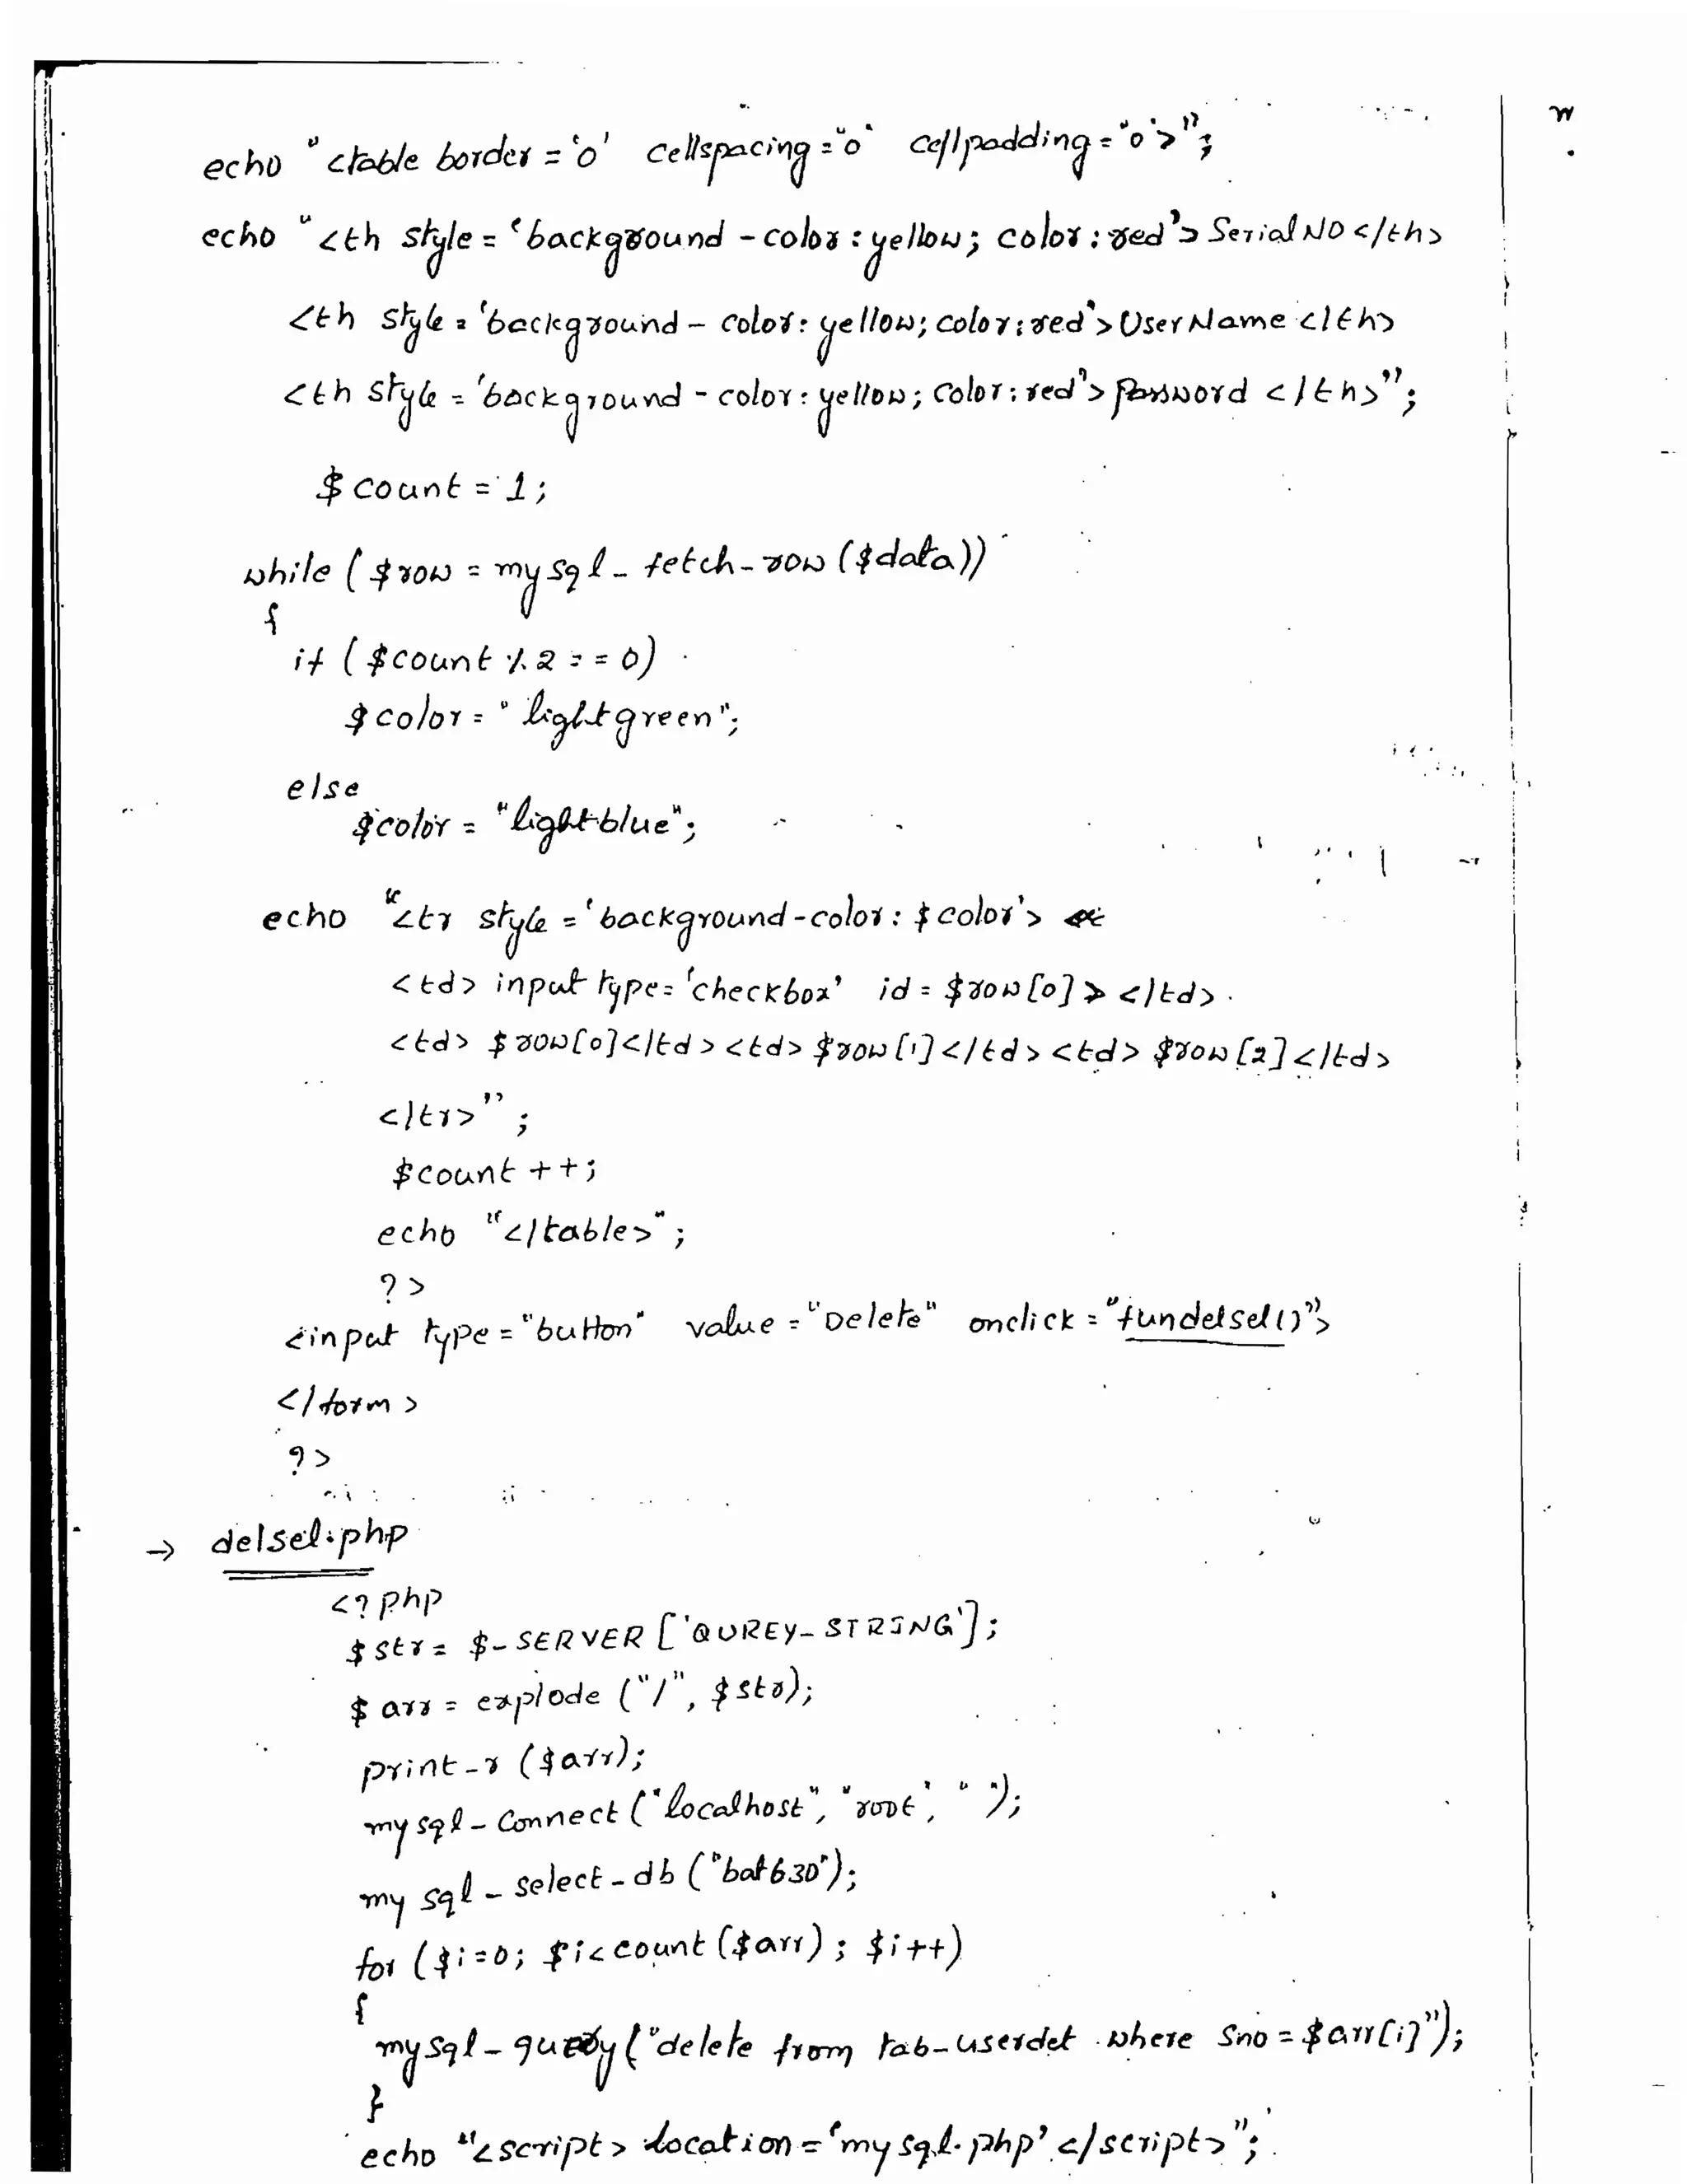 echo "<table border = '0' cellspacing = "0" cellpadding = "0'>";
echo "<th style = 'background - color : yellow; color : red'> Serial NO </th>
<th style = 'background - color : yellow; color : red'> UserName </th>
<th style = 'background - color : yellow; color : red'> password </th>";
$count = 1;
while ($row = mysql_fetch_row ($data))
{
if ($count % 2 == 0)
$color = "lightgreen";
else
$color = "lightblue";
echo "<tr style = 'background-color : $color'>
<td> input type = 'checkbox' id = $row[0] > </td>
<td> $row[0]</td> <td> $row[1] </td> <td> $row[2] </td>
</tr>";
$count ++;
echo "</table>";
?>
<input type = "button" value = "Delete" onclick = "fundelsel()">
</form>
?>
→ delsel.php
<?php
$str = $_SERVER ['QUREY_STRING'];
$arr = explode ("/", $str);
print_r ($arr);
mysql_connect ("localhost", "root", " ");
mysql_select_db ("bat630");
for ($i=0; $i< count ($arr) ; $i++)
{
mysql_query ("delete from tab_userdet where sno = $arr[i]");
}
echo "<script> location = 'mysql.php' </script>";